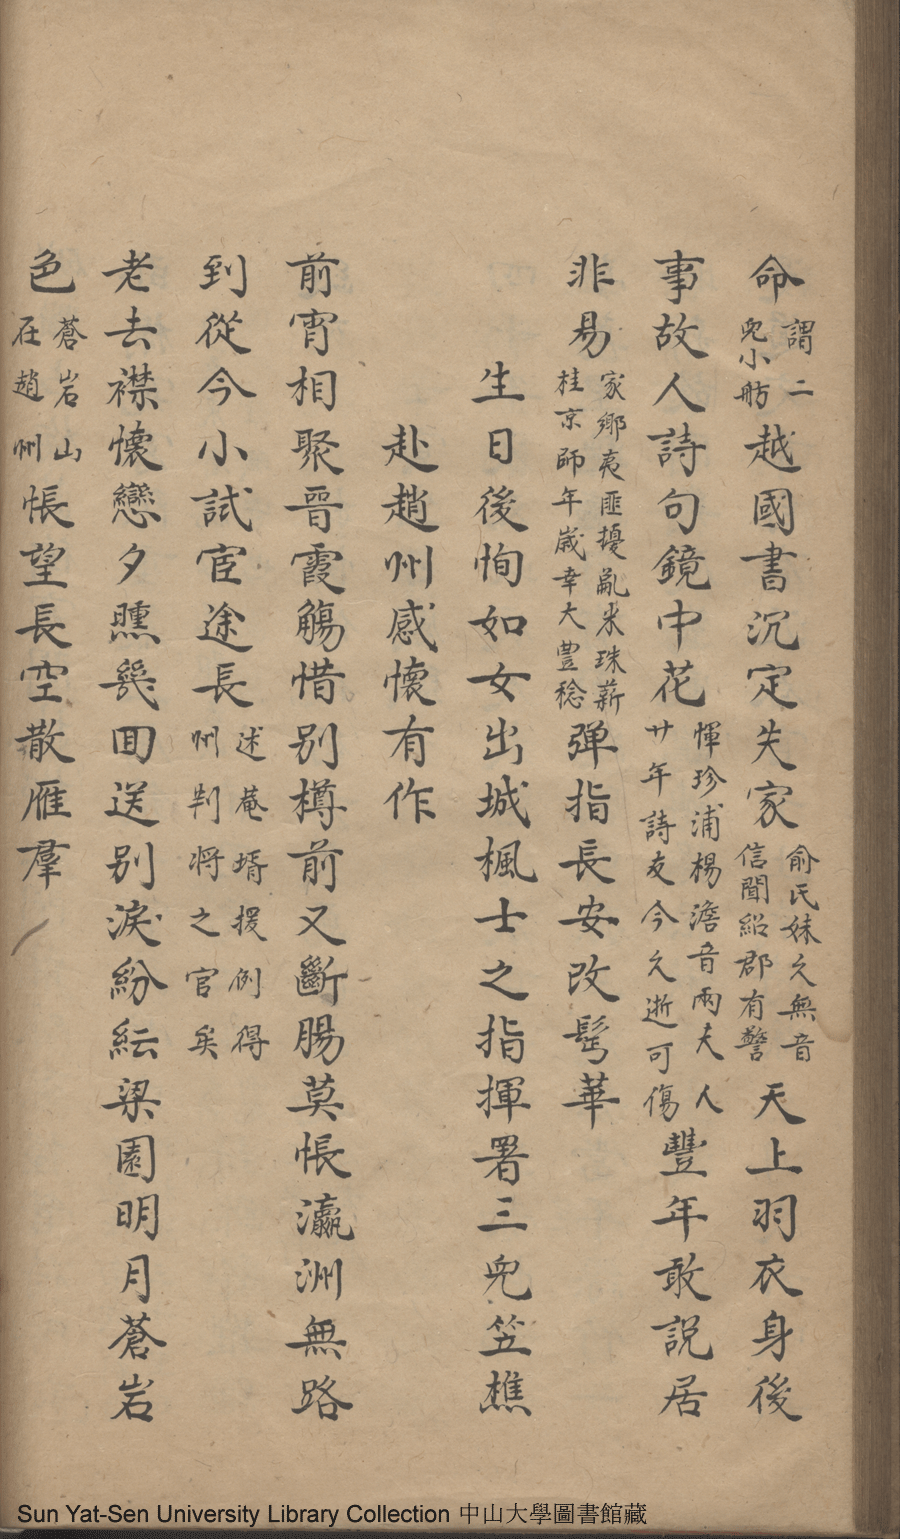 命謂二兒小舫越國書沉定失家俞氏妹久無音信聞紹郡有警天上羽衣身後
事故人詩句鏡中花惲珍浦楊澹音兩夫人廿年詩友今久逝可傷豐年敢説居
非易家鄉夷匪擾亂米珠薪桂京師年歲幸大豊稔彈指長安改髩華
生日後恂如女出城楓士之指揮署三兒笠樵
赴趙州感懷有作
前宵相聚晉霞觴惜别樽前又斷腸莫悵瀛洲無路
到從今小試宦途長述菴壻援例得州判將之官矣
老去襟懷戀夕曛幾囬送别淚紛紜梁園明月蒼岩
色蒼岩山在趙州悵望長空散雁羣
Sun Yat-Sen University Library Collection 中山大學圖書館藏